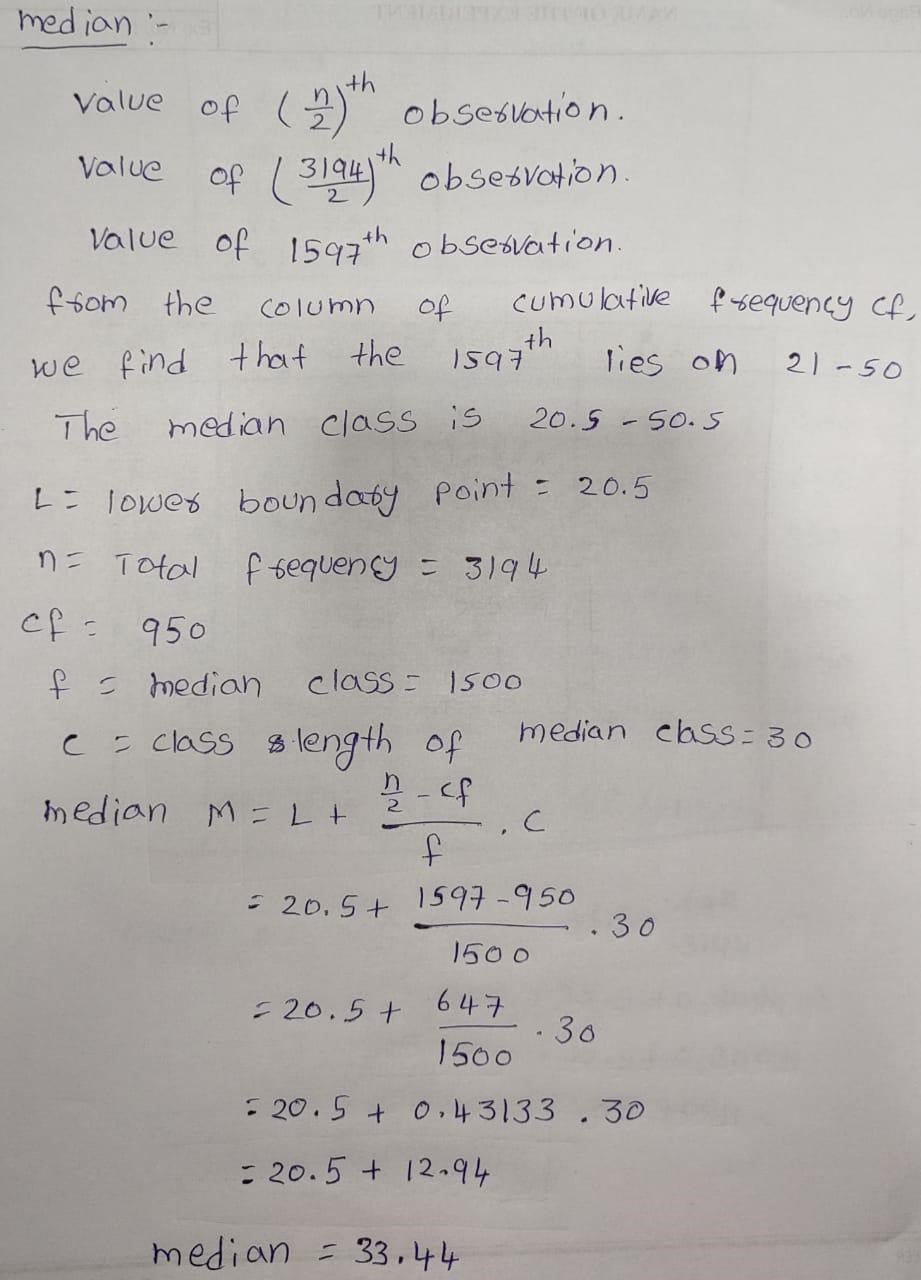 median :-
value of (n/2)th observation.
value of (3194/2)th observation.
value of 1597th observation.
from the column of cumulative frequency cf,
we find that the 1597th lies on 21-50
The median class is 20.5 - 50.5
L = lower boundary point = 20.5
n = Total frequency = 3194
cf = 950
f = median class = 1500
c = class length of median class = 30
median M = L + (n/2 - cf)/f . c
= 20.5 + (1597-950)/1500 . 30
= 20.5 + 647/1500 . 30
= 20.5 + 0.43133 . 30
= 20.5 + 12.94
median = 33.44